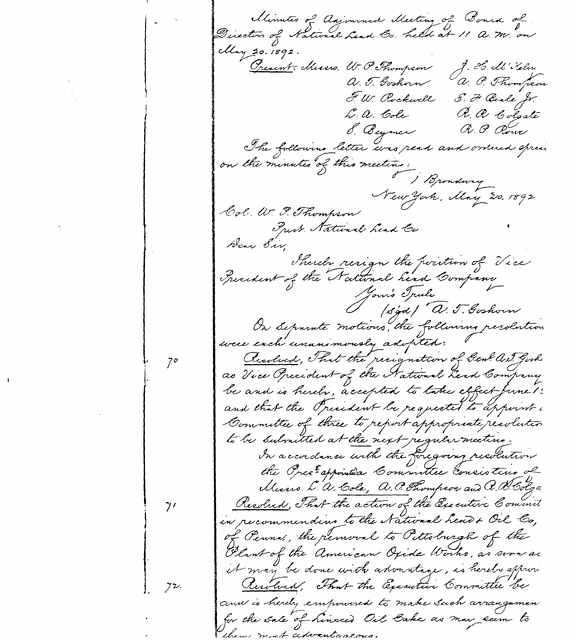 Minutes of Adjourned Meeting of Board of
Directors of National Lead Co. held at 11 A.M. on
May 20. 1892.
Present. Messrs. W. P. Thompson J. H. McKelvy
A. T. Goshorn A. P. Thompson
F. W. Rockwell E. F. Beale Jr.
L. A. Cole R. R. Colgate
S. Beymer R. P. Rowe
The following letter was read and ordered sprea
on the minutes of this meeting:
1 Broadway
New York, May 20, 1892
Col. W. P. Thompson
Prest. National Lead Co
Dear Sir,
I hereby resign the position of Vice
President of the National Lead Company
Yours Truly
(sgd) A. T. Goshorn
On separate motions, the following resolution
were each unanimously adopted:
70 Resolved, That the resignation of Genl A. T. Gosh
as Vice President of the National Lead Company
be and is hereby, accepted to take effect June 1
and that the President be requested to appoint a
Committee of three to report appropriate resolution
to be submitted at the next regular meeting.
In accordance with the foregoing resolution
the Prest appointed a Committee consisting of
Messrs L. A. Cole, A. P. Thompson and R. R. Colga
71 Resolved, That the action of the Executive Commit
in recommending to the National Lead & Oil Co,
of Penna, the removal to Pittsburgh of the
Plant of the American Oxide Works, as soon as
it may be done with advantage, is hereby approv
72. Resolved, That the Executive Committee be
and is hereby empowered to make such arrangemen
for the sale of Linseed Oil Cake as may seem to
them most advantageous.